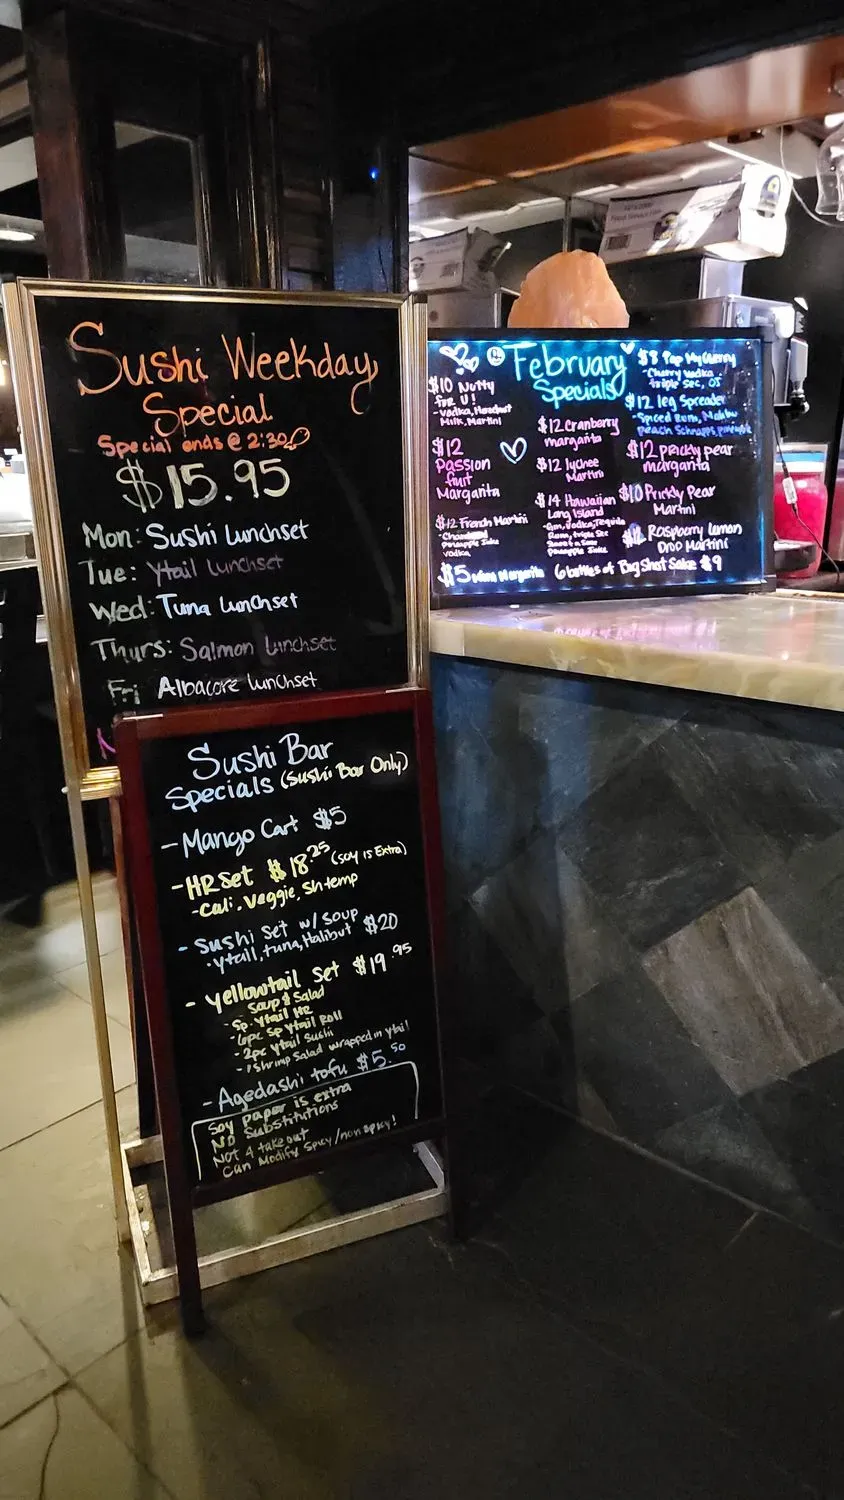 Sushi Weekday
Special
Special ends @ 2:30
$15.95
Mon: Sushi Lunchset
Tue: Ytail Lunchset
Wed: Tuna Lunchset
Thurs: Salmon Lunchset
Fri Albacore Lunchset
Sushi Bar
Specials (Sushi Bar Only)
- Mango Cart $5
- HR Set $18.25 (soy is Extra)
- Cali, Veggie, Shtemp
- Sushi Set w/ Soup $20
• ytail, tuna, Halibut
- Yellowtail Set $19.95
Soup & Salad
- Sp. Ytail HR
- 6pc Sp Ytail Roll
- 2pc Ytail Sushi
- 1 Shrimp Salad wrapped in ytail
- Agedashi tofu $5.50
Soy paper is extra
NO Substitutions
Not 4 take out
Can Modify Spicy/non spicy!
February
Specials
$10 Nutty
for U!
- Vodka, Hazelnut
Milk, Martini
$12
Passion
fruit
Margarita
$12 French Martini
- Chambord
Pineapple Juice
Vodka
$5 Margarita
$12 Cranberry
margarita
$12 lychee
Martini
$14 Hawaiian
Long Island
- Gin, Vodka, Tequila
Rum, triple Sec
Sweet & Sour
Pineapple Juice
6 bottles of Big Shot Sake $9
$8 Pop My Cherry
- Cherry Vodka
triple Sec, OJ
$12 leg Spreader
- Spiced Rum, Malibu
peach Schnapps, pineapple
$12 prickly pear
margarita
$10 Prickly Pear
Martini
Raspberry lemon
Drop Martini